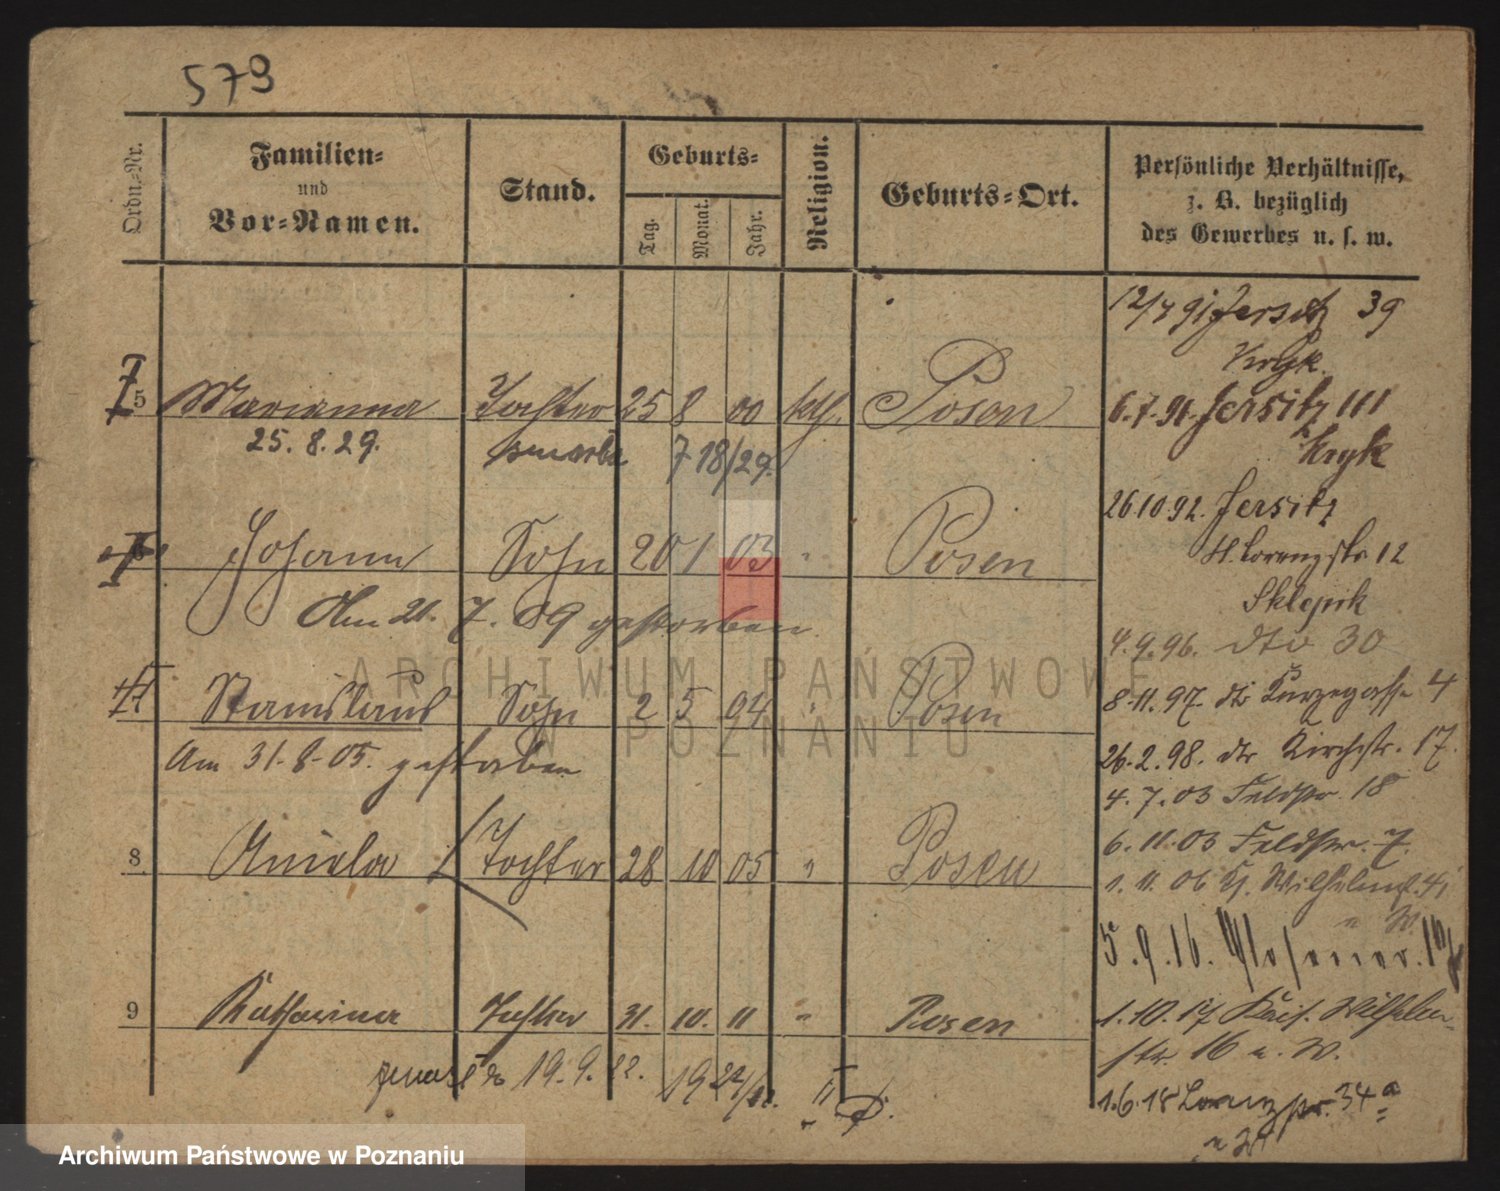 579
Ordn.-Nr.
Familien-
und
Vor-Namen.
Stand.
Geburts-
Tag.
Monat.
Jahr.
Religion.
Geburts-Ort.
Persönliche Verhältnisse,
z. B. bezüglich
des Gewerbes u. s. w.
5 Marianna Tochter 25 8 00 kath. Posen
25. 8. 29. zmarła 7 18/29.
Johann Sohn 20 1 03 " Posen
Am 21. 7. 09 gestorben.
Stanislaus Sohn 2 5 04 " Posen
Am 31. 8. 05. gestorben
8 Aniela Tochter 28 10 05 " Posen
9 Katharina Tochter 31. 10. 11 " Posen
19. 9. 22. 19 22/
12/7 91 Jersitz 39
Kryk.
6.7.91. Jersitz 111
b. Kryk
26.10 92. Jersitz
St. Lorenzstr 12
Sklepik
4.9.96. dto 30
8.11.97. dto Kurzegasse 4
26.2.98. dto Kirchstr. 17.
4.7.03 Feldstr. 18
6.11.03 Feldstr. 7.
1.11.06 Kj. Wilhelmst. 41
u W.
5.9.16. Glogauer.
1.10.17 Kais. Wilhelm-
str. 16 u. W.
1.6.18 Lorenzstr. 34a
ARCHIWUM PAŃSTWOWE
W POZNANIU
Archiwum Państwowe w Poznaniu